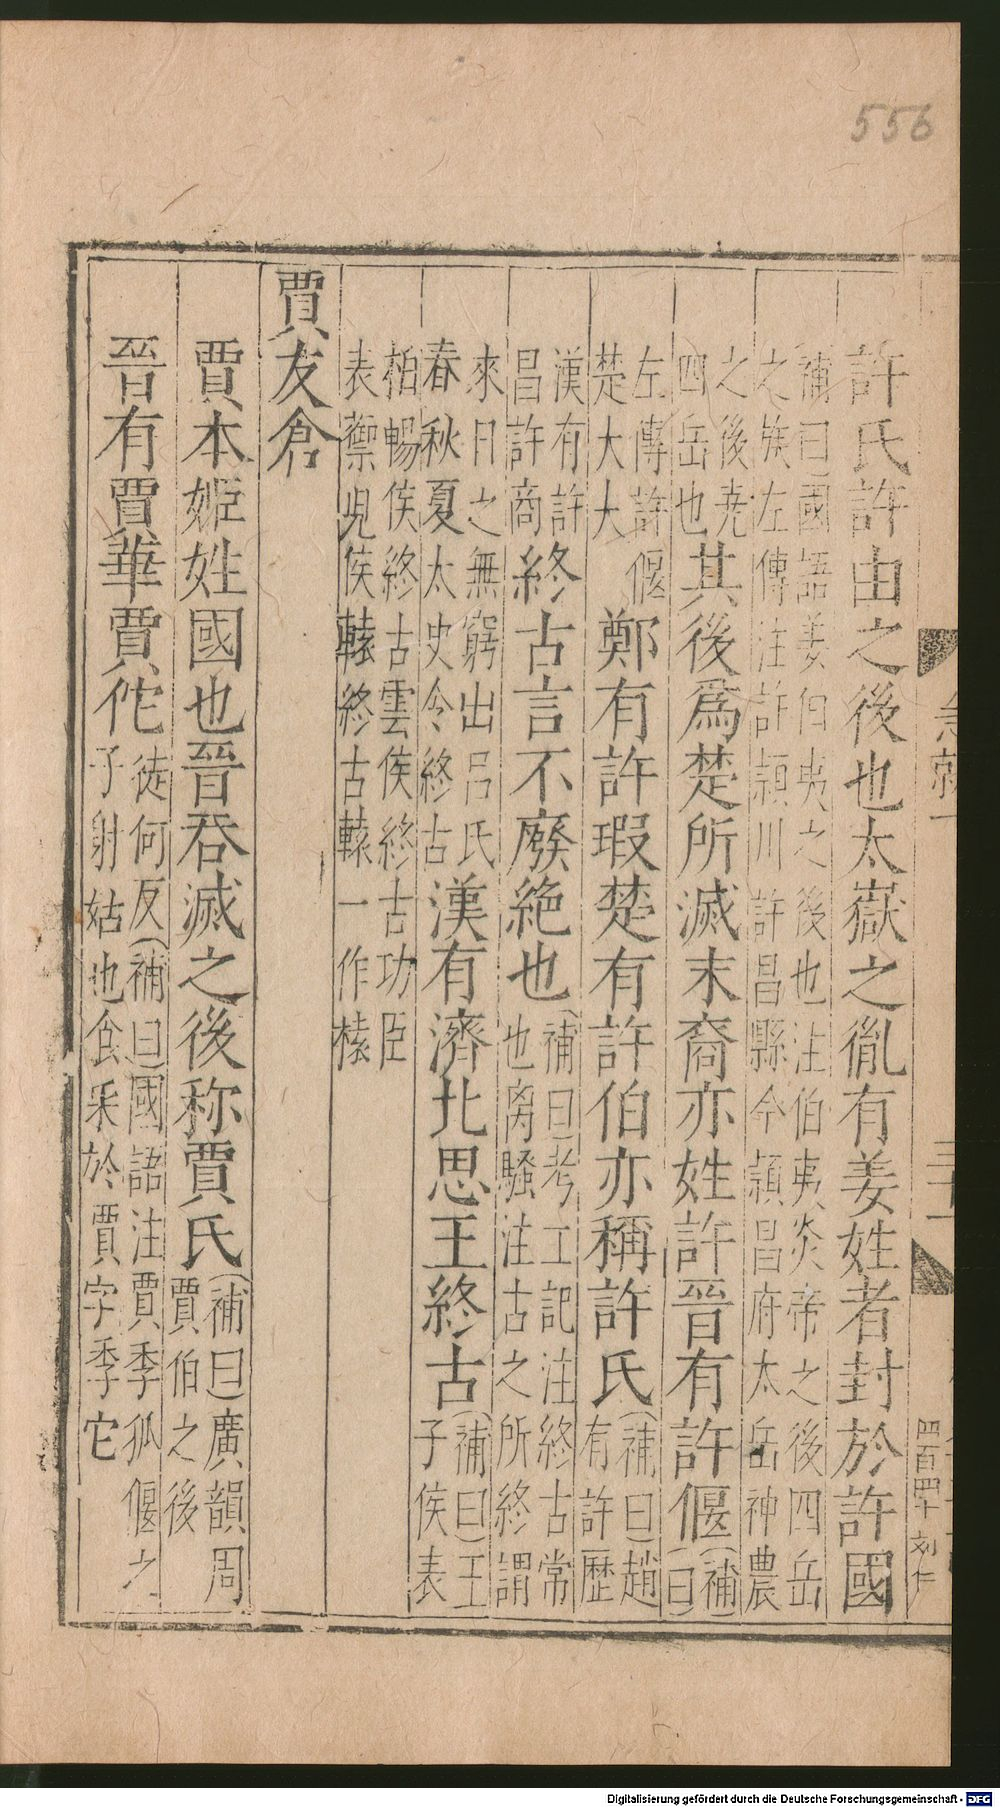 556
許氏許由之後也太嶽之胤有姜姓者封於許國
補曰國語姜伯夷之後也注伯夷炎帝之後四岳
之族左傳注許潁川許昌縣今潁昌府太岳神農
之後堯
四岳也
其後爲楚所滅末裔亦姓許晉有許偃
補
曰
左傳許偃
楚大夫
鄭有許瑕楚有許伯亦稱許氏
補曰趙
有許歷
漢有許
昌許商
終古言不廢絶也
補曰考工記注終古常
也离騷注古之所終謂
來日之無窮出呂氏
春秋夏太史令終古
漢有濟北思王終古
補曰王
子侯表
柏暢侯終古雲侯終古功臣
表蘌兒侯轅終古轅一作榬
賈友倉
賈本姬姓國也晉吞滅之後称賈氏
補曰廣韻周
賈伯之後
晉有賈華賈佗
徒何反補曰國語注賈季狐偃之
子射姑也食采於賈字季它
急就一
三十一
四百四十
刻仁
Digitalisierung gefördert durch die Deutsche Forschungsgemeinschaft - DFG